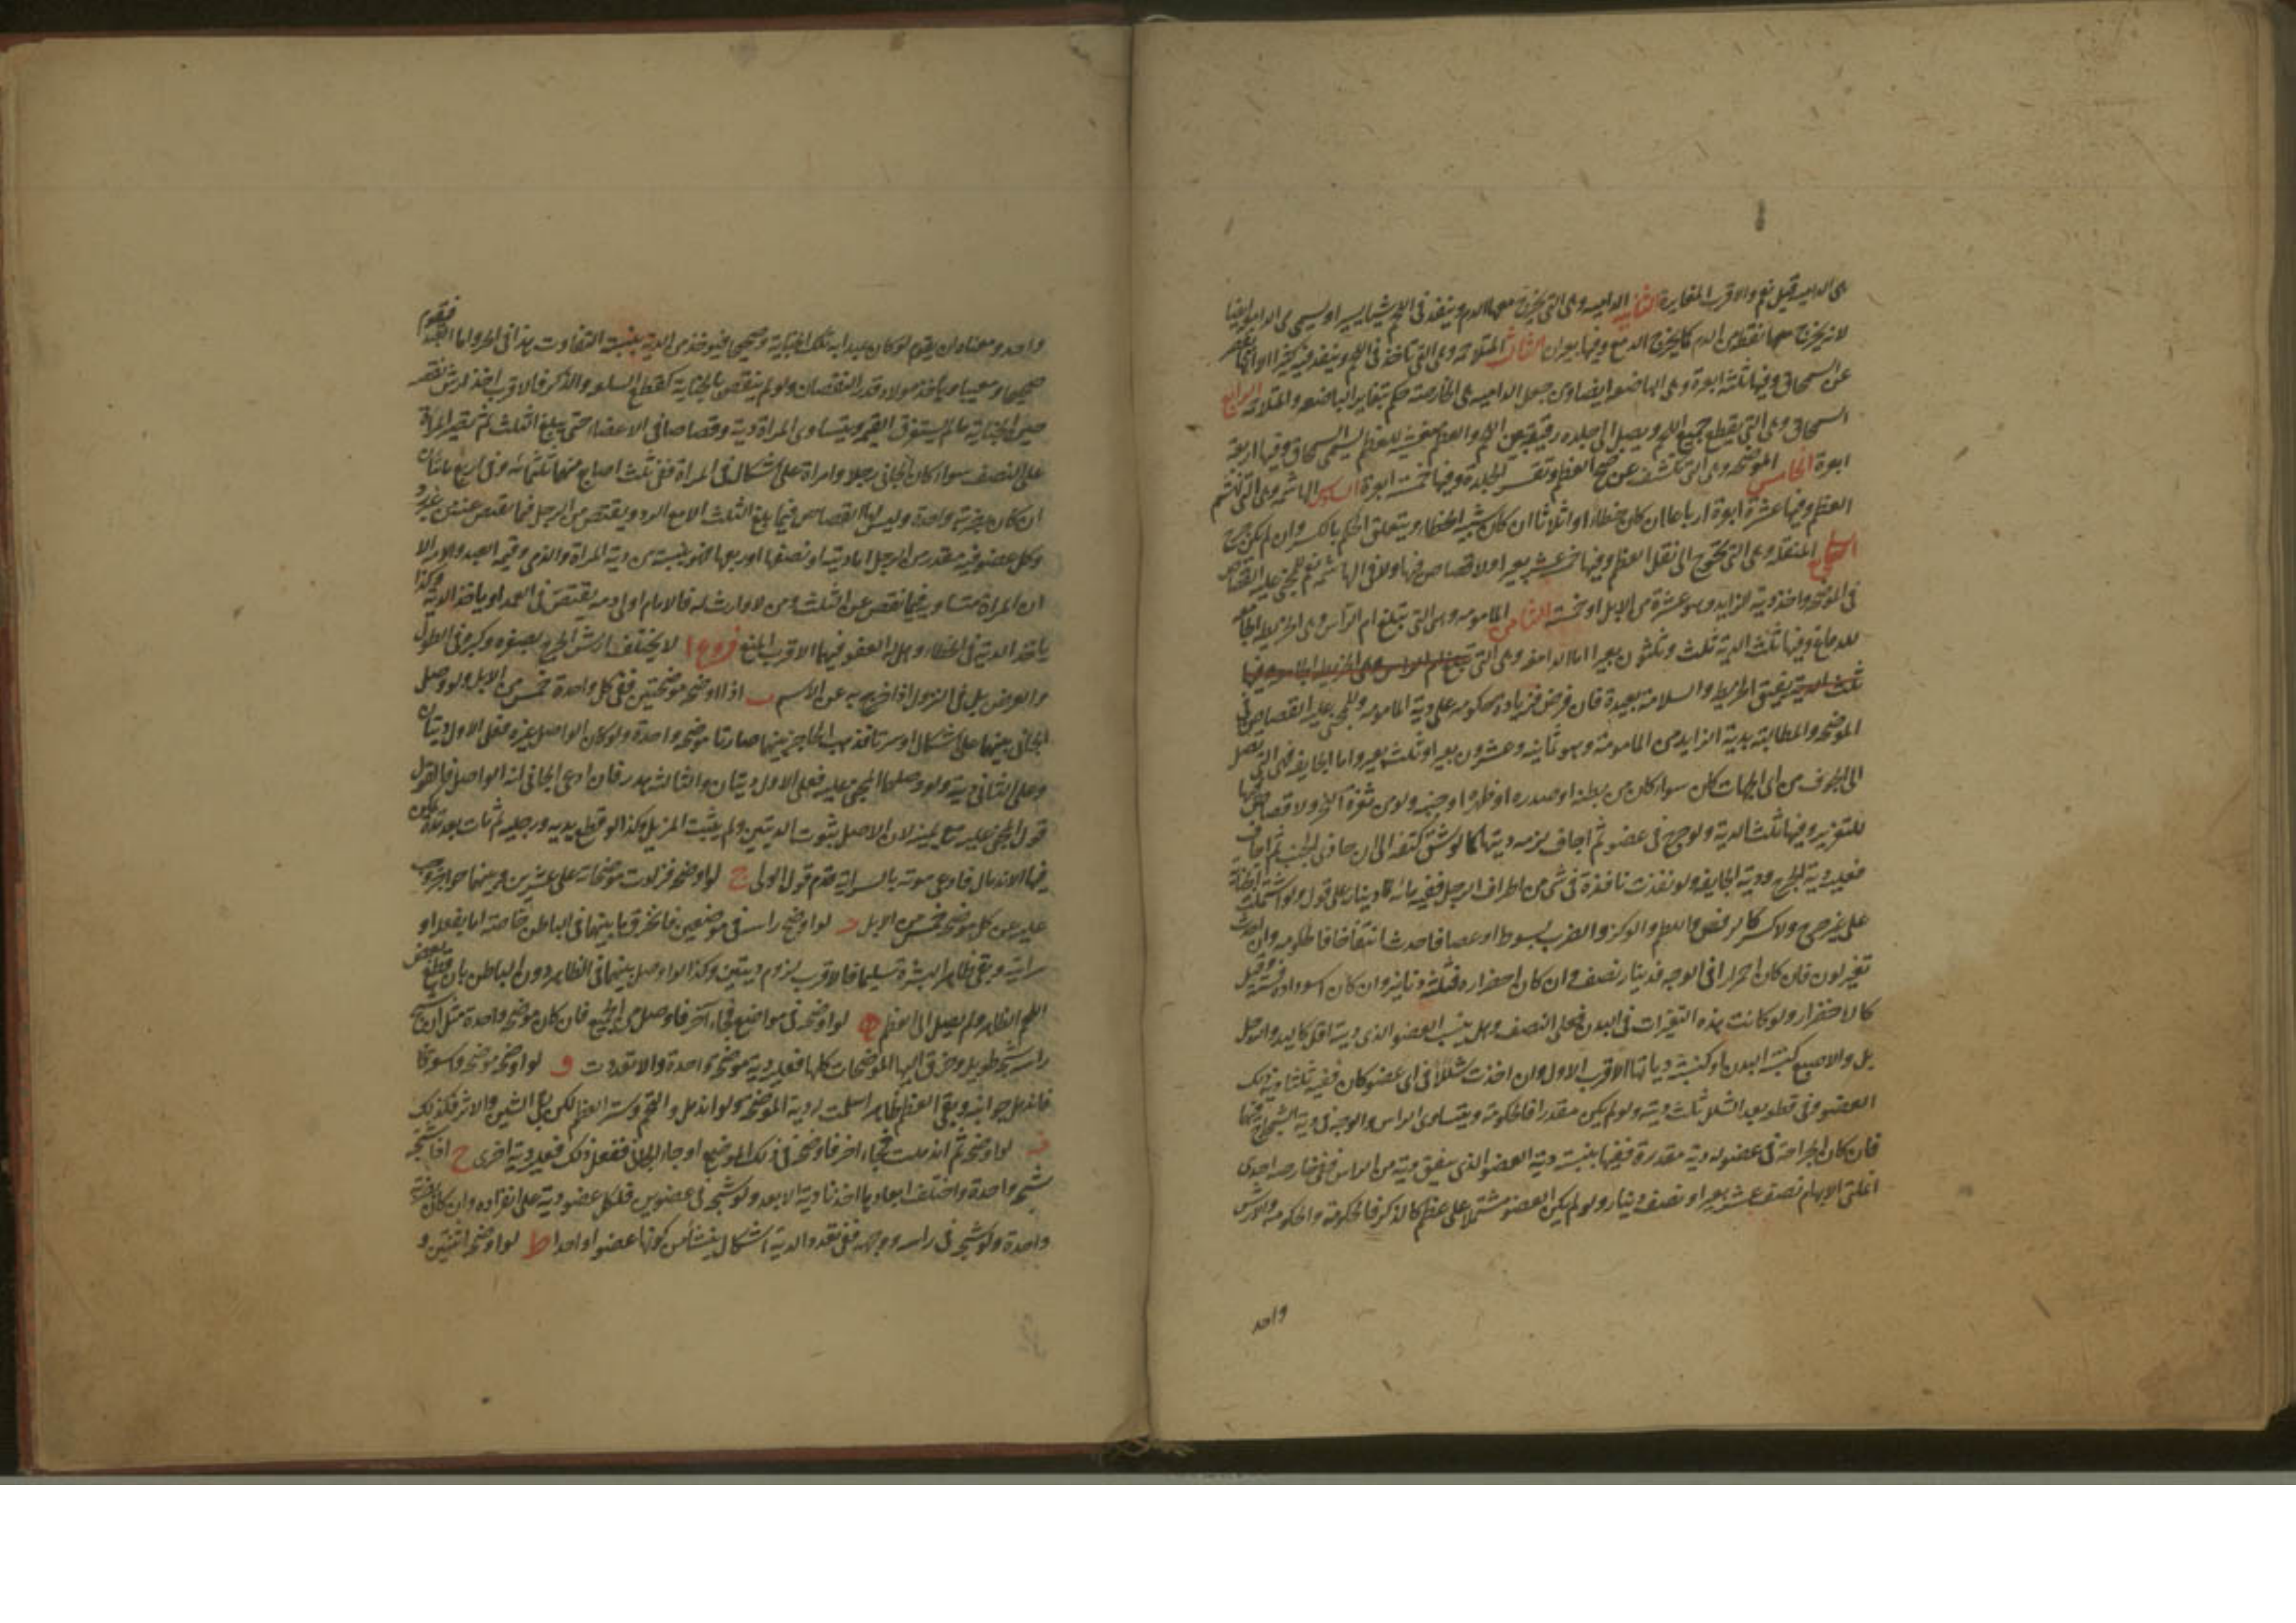 هى الداميه قيل نعم والاقرب المغايرة الثانية الداميه وهى التى يخرج معها الدم وينفذ فى اللحم شيئا يسيرا ويسمى الداميه ايضا
لانه يخرج منها نقطة من الدم كما يخرج الدمع وفيها بعيران الثالث المتلاحمه وهى التى تاخذ فى اللحم وينفذ فيه كثيرا الا انها تقصر
عن السمحاق وفيها ثلثة ابعرة وهى الباضعه ايضا ومن جعل الداميه هى الخارصه حكم بتغاير الباضعه والمتلاحمه الرابع
السمحاق وهى التى يقطع جميع اللحم ويصل الى جلدة رقيقة بين اللحم والعظم مغشية للعظم يسمى السمحاق وفيها اربعة
ابعرة الخامس الموضحه وهى التى تكشف عن وضح العظم وتقشر الجلدة وفيها خمسة ابعرة السادس الهاشمه وهى التى تهشم
العظم وفيها عشرة ابعرة ارباعا ان كان خطاء او اثلاثا ان كان شبيه الخطاء ويتعلق الحكم بالكسر وان لم يكن جرح
السابع المنقله وهى التى تحوج الى نقل العظم وفيها خمسة عشر بعيرا ولا قصاص فيها ولا فى الهاشمه نعم للمجنى عليه القصاص
فى الموضحه واخذ دية الزايد وهو عشرة من الابل او خمسة الثامن المامومه وهى التى تبلغ ام الراس وهى الخريطه الجامعه
للدماغ وفيها ثلث الدية ثلث وثلثون بعيرا اما الدامغه وهى التى
يفتق الخريطه والسلامة بعيدة فان فرض فزيادة حكومه على دية المامومه وللمجنى عليه القصاص فى
الموضحه والمطالبة بدية الزايد من المامومة وهو ثمانيه وعشرون بعيرا وثلث بعير واما الجايفه فهى التى تصل
الى الجوف من اى الجهات كان سواء كان من بطنه او صدره او ظهره او جنبه ولو من ثغرة النحر ولا قصاص فيها
للتغرير وفيها ثلث الدية ولو جرح فى عضو ثم اجاف لزمه ديتهما كما لو شق كتفه الى ان حاذى الجنب ثم اجاف
فعليه دية الجرح ودية الجايفه ولو نفذت نافذة فى شئ من اطراف الرجل ففيه مائة دينار على قول ولو اشتملت الجناية
على غير جرح ولا كسر كالرفس واللطم والوكز والضرب بسوط او عصا فاحدث انتفاخا فالحكومه وان احدث
تغير لون فان كان احمرارا فى الوجه فدينار ونصف وان كان اخضرارا فثلثة دنانير وان كان اسودادا فستة وقيل
كالاخضرار ولو كانت هذه التغيرات فى البدن فعلى النصف وهل ينسب العضو الذى ديته اقل كاليد والرجل
بل والاصبع كنسبة البدن او كنسبة دياتها الاقرب الاول وان احدث شللا فى اى عضو كان ففيه ثلثا دية ذلك
العضو وفى قطعه بعد الشلل ثلث ديته ولو لم يكن مقدرا فالحكومة ويتساوى الراس والوجه فى دية الشجاج فيهما
فان كان الجراحة فى عضو له دية مقدرة ففيها بنسبة دية العضو الذى يتفق ديته من الراس ففى خارصه احدى
انملتى الابهام نصف عشر بعير او نصف دينار ولو لم يكن العضو مشتملا على عظم كالذكر فالحكومة والحكومه والارش
واحد
واحد ومعناه ان يقوم لو كان عبدا به تلك الجناية وصحيحا فيوخذ من الدية بنسبة التفاوت هذا فى الحر واما العبد فيقوم
صحيحا ومعيبا وياخذ مولاه قدر النقصان ولو لم ينقص بالجناية كقطع السلع والذكر فالاقرب اخذ ارش نقصه
حين الجناية ما لم يستغرق القيمه ويتساوى المراة دية وقصاصا فى الاعضاء حتى يبلغ الثلث ثم تصير المراة
على النصف سواء كان الجانى رجلا او امراة على اشكال فى المراة ففى ثلث اصابع منها ثلثمائة وفى اربع مائتان
ان كان بضربة واحدة وليس لها القصاص فيما بلغ الثلث الا مع الرد ويقتص من الرجل فيما نقص عنه من غير رد
وكل عضو فيه مقدر من الرجل اما ديته او نصفها او ربعها فهو بنسبته من دية المراة والذمى وقيمة العبد والامة الا
ان المراة تساويه فيما نقص عن الثلث ومن لا وارث له فالامام ولى دمه يقتص فى العمد او ياخذ الدية وكذا
ياخذ الدية فى الخطاء وهل له العفو فيهما الاقرب المنع فروع ا لا يختلف ارش الجرح بصغره وكبره فى الطول
والعرض بل فى النزول اذا خرج به عن الاسم ب اذا اوضحه موضحتين ففى كل واحدة خمس من الابل ولو وصل
الجانى بينهما على اشكال او سرتا فذهب الحاجز بينهما صارتا موضحه واحدة ولو كان الواصل غيره فعلى الاول ديتان
وعلى الثانى دية ولو وصلهما المجنى عليه فعلى الاول ديتان والثالث هدر فان ادعى الجانى انه الواصل فالقول
قول المجنى عليه مع يمينه لان الاصل ثبوت الديتين ولم يثبت المزيل وكذا لو قطع يديه ورجليه ثم مات بعد مدة يمكن
فيها الاندمال فادعى موته بالسراية قدم قول الولى ج لو اوضحه فزادت موضحاته على عشرين وبينهما حواجز وجب
عليه عن كل موضحه خمس من الابل د لو اوضح راسه فى موضعين فانخرق ما بينهما فى الباطن خاصة اما بفعله او
سرايته وبقى ظاهر البشرة سليما فالاقرب لزوم ديتين وكذا لو وصل بينهما فى الظاهر دون الباطن بان قطع بعض
اللحم الظاهر ولم يصل الى العظم ه لو اوضحه فى مواضع فجاء آخر فاوصل بين الجميع فان كان موضحه واحدة مثل ان شج
راسه شجه طويله وخرق اليها الموضحات كلها فعليه دية موضحه واحدة والا تعددت و لو اوضحه موضحه واسعة
فاندمل جوانبه وبقى العظم ظاهرا سلمت له دية الموضحه ولو اندمل والتحم وستر العظم لكن بقى الشين والاثر فكذلك
ز لو اوضحه ثم اندملت فجاء اخر فاوضحه فى ذلك الموضع او جاء الجانى ففعل ذلك فعليه دية اخرى ح اذا شجه
شجه واحدة واختلف ابعادها اخذنا دية الابعد ولو شجه فى عضوين فلكل عضو دية على انفراده وان كان بضربة
واحدة ولو شجه فى راسه ووجهه ففى تعدد الدية اشكال ينشأ من كونهما عضوا واحدا ط لو اوضحه اثنتين و